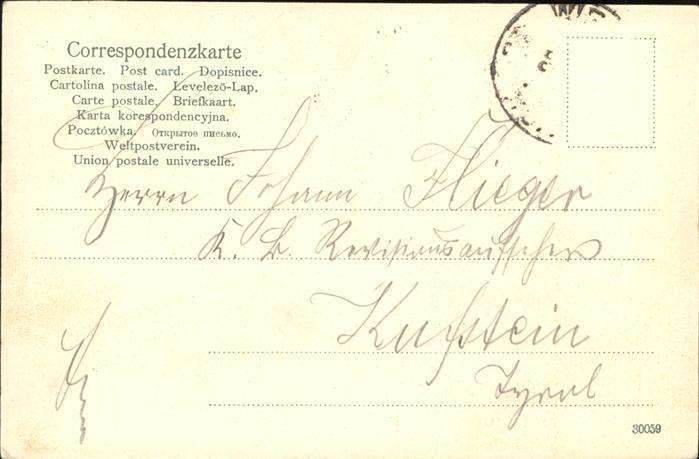 Correspondenzkarte
Postkarte. Post card. Dopisnice.
Cartolina postale. Levelező-Lap.
Carte postale. Briefkaart.
Karta korespondencyjna.
Pocztówka. Открытое письмо.
Weltpostverein.
Union postale universelle.
Herrn Johann Flieger
K. K. Revisionsaufseher
Kufstein
Tyrol
30059